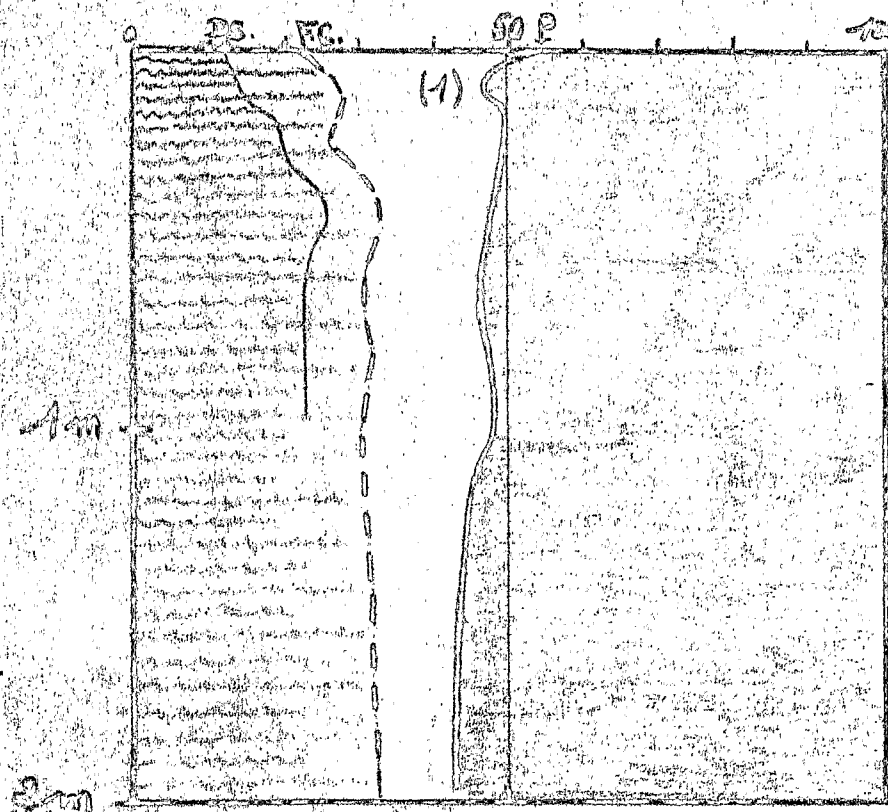 0 P.S. F.C. 50 P
(1)
1 m
2 m